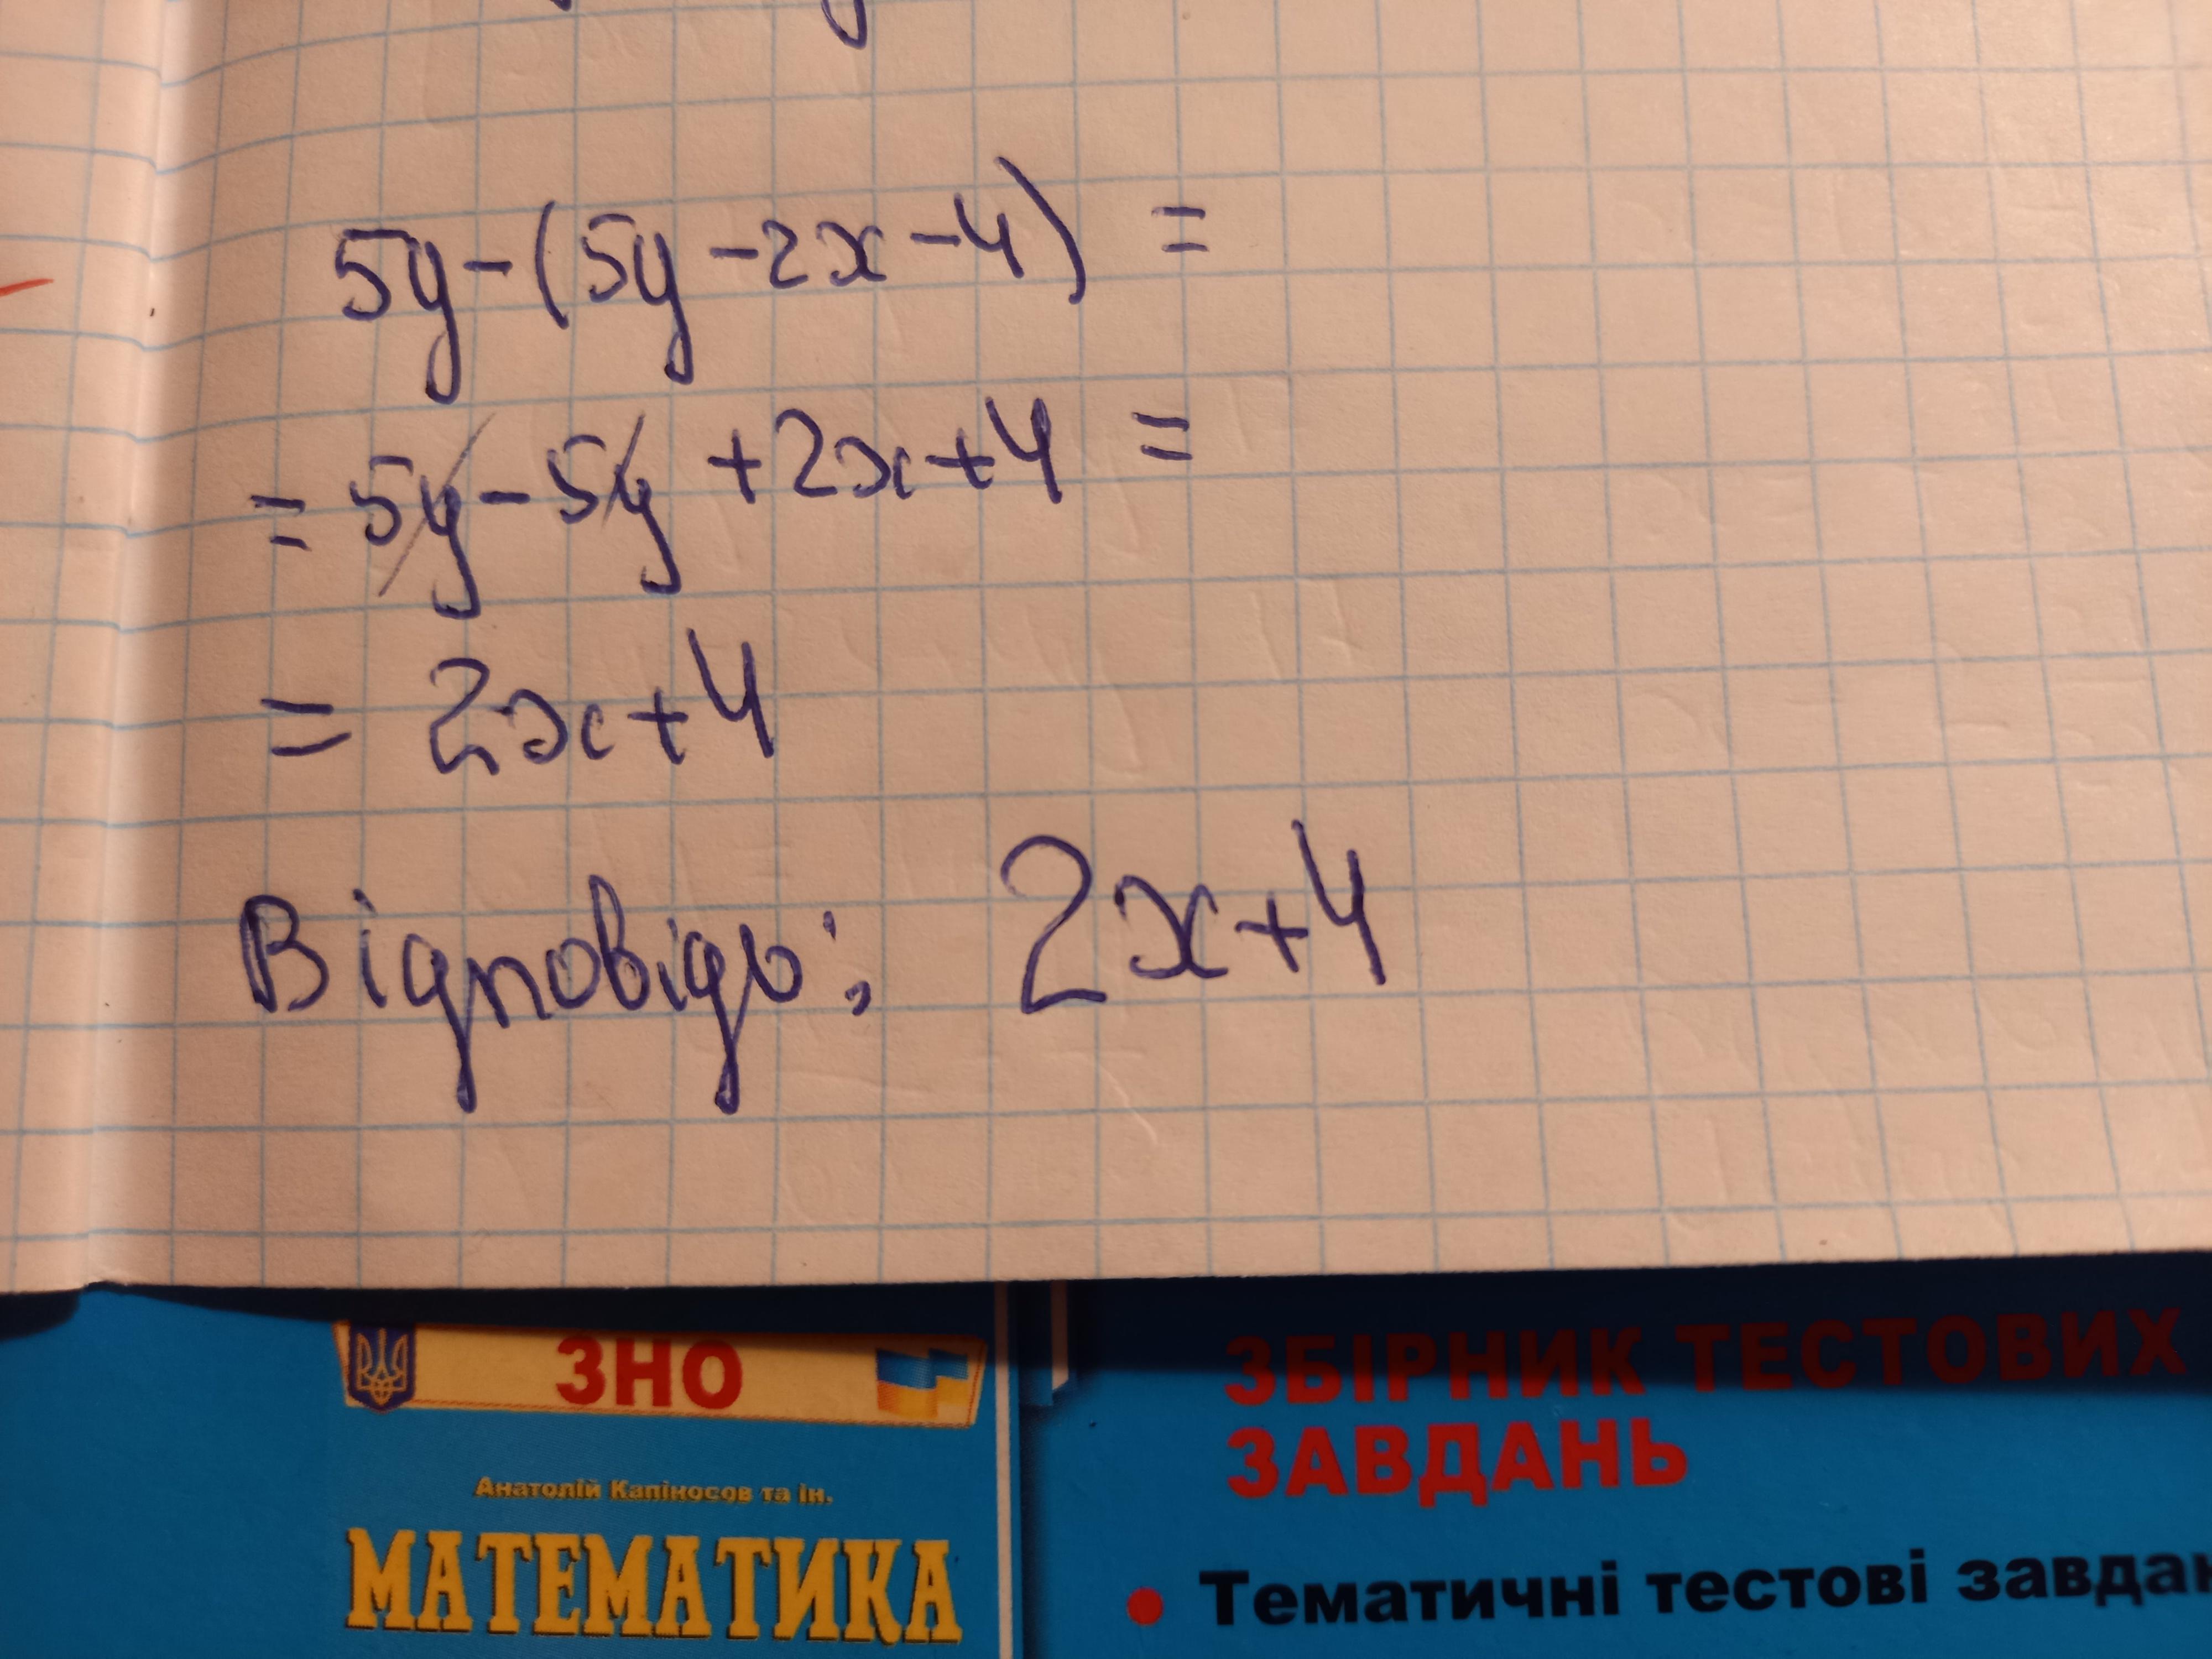 5y-(5y-2x-4) =
= 5y-5y+2x+4 =
= 2x+4
Відповідь: 2x+4
ЗНО
Анатолій Капіносов та ін.
МАТЕМАТИКА
ЗБІРНИК ТЕСТОВИХ
ЗАВДАНЬ
• Тематичні тестові завдан